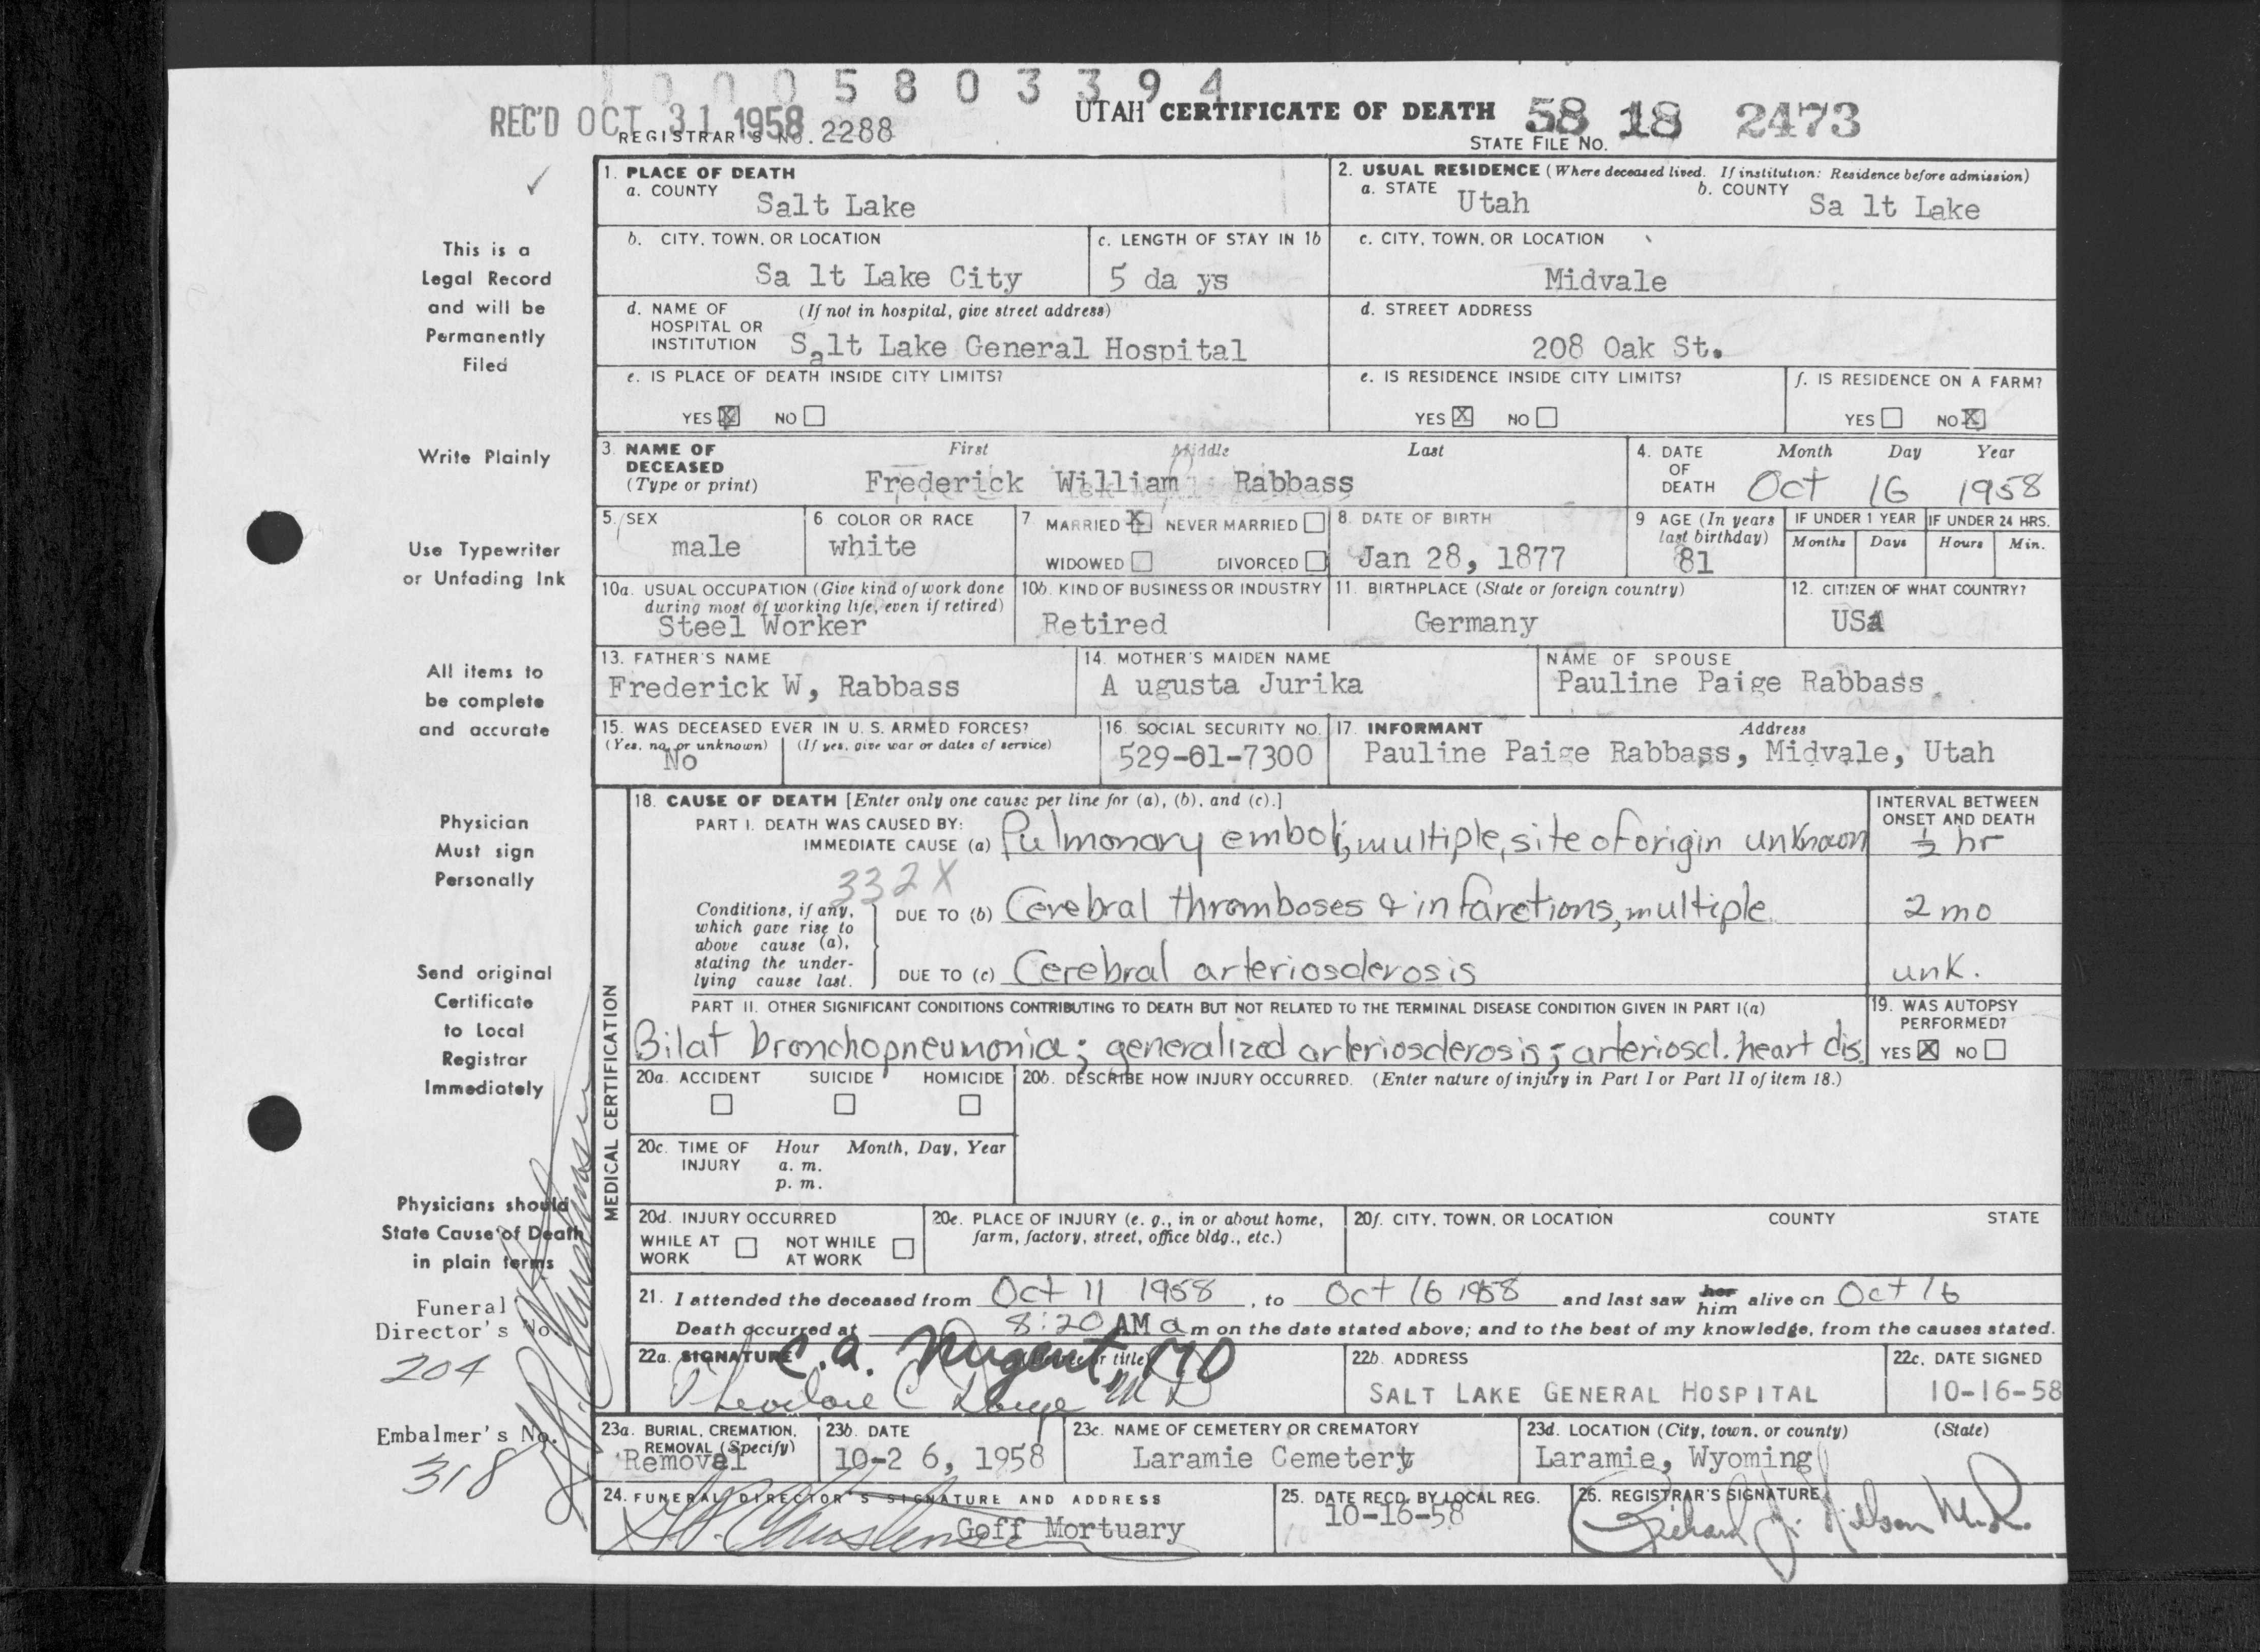 10005803394
REC'D OCT 31 1958
REGISTRAR'S NO. 2288
UTAH CERTIFICATE OF DEATH 58 18 2473
STATE FILE NO.
This is a
Legal Record
and will be
Permanently
Filed
Write Plainly
Use Typewriter
or Unfading Ink
All items to
be complete
and accurate
Physician
Must sign
Personally
Send original
Certificate
to Local
Registrar
Immediately
Physicians should
State Cause of Death
in plain terms
Funeral
Director's No.
204
Embalmer's No.
318
1. PLACE OF DEATH
a. COUNTY Salt Lake
2. USUAL RESIDENCE (Where deceased lived. If institution: Residence before admission)
a. STATE Utah b. COUNTY Sa lt Lake
b. CITY, TOWN, OR LOCATION Sa lt Lake City
c. LENGTH OF STAY IN 1b 5 da ys
c. CITY, TOWN, OR LOCATION
Midvale
d. NAME OF HOSPITAL OR INSTITUTION (If not in hospital, give street address)
Salt Lake General Hospital
d. STREET ADDRESS
208 Oak St.
e. IS PLACE OF DEATH INSIDE CITY LIMITS?
YES X NO
e. IS RESIDENCE INSIDE CITY LIMITS?
YES X NO
f. IS RESIDENCE ON A FARM?
YES NO X
3. NAME OF DECEASED (Type or print) First Middle Last
Frederick William Rabbass
4. DATE OF DEATH Month Day Year
Oct 16 1958
5. SEX male
6. COLOR OR RACE white
7. MARRIED X NEVER MARRIED
WIDOWED DIVORCED
8. DATE OF BIRTH
Jan 28, 1877
9 AGE (In years last birthday) 81
IF UNDER 1 YEAR Months Days
IF UNDER 24 HRS. Hours Min.
10a. USUAL OCCUPATION (Give kind of work done during most of working life, even if retired)
Steel Worker
10b. KIND OF BUSINESS OR INDUSTRY
Retired
11. BIRTHPLACE (State or foreign country)
Germany
12. CITIZEN OF WHAT COUNTRY?
USA
13. FATHER'S NAME
Frederick W, Rabbass
14. MOTHER'S MAIDEN NAME
A ugusta Jurika
NAME OF SPOUSE
Pauline Paige Rabbass
15. WAS DECEASED EVER IN U. S. ARMED FORCES?
(Yes, no, or unknown) (If yes, give war or dates of service)
No
16. SOCIAL SECURITY NO.
529-01-7300
17. INFORMANT Address
Pauline Paige Rabbass, Midvale, Utah
MEDICAL CERTIFICATION
18. CAUSE OF DEATH [Enter only one cause per line for (a), (b), and (c).]
INTERVAL BETWEEN ONSET AND DEATH
PART I. DEATH WAS CAUSED BY:
IMMEDIATE CAUSE (a) Pulmonary emboli, multiple, site of origin unknown ½ hr
332X
Conditions, if any, which gave rise to above cause (a), stating the underlying cause last.
DUE TO (b) Cerebral thromboses & infarctions, multiple 2 mo
DUE TO (c) Cerebral arteriosclerosis unk.
PART II. OTHER SIGNIFICANT CONDITIONS CONTRIBUTING TO DEATH BUT NOT RELATED TO THE TERMINAL DISEASE CONDITION GIVEN IN PART I(a)
Bilat bronchopneumonia; generalized arteriosclerosis; arterioscl. heart dis.
19. WAS AUTOPSY PERFORMED?
YES X NO
20a. ACCIDENT SUICIDE HOMICIDE
20b. DESCRIBE HOW INJURY OCCURRED. (Enter nature of injury in Part I or Part II of item 18.)
20c. TIME OF INJURY Hour Month, Day, Year
a. m.
p. m.
20d. INJURY OCCURRED
WHILE AT WORK NOT WHILE AT WORK
20e. PLACE OF INJURY (e. g., in or about home, farm, factory, street, office bldg., etc.)
20f. CITY, TOWN, OR LOCATION COUNTY STATE
21. I attended the deceased from Oct 11 1958, to Oct 16 1958 and last saw her him alive on Oct 16
Death occurred at 8:20 AM a m on the date stated above; and to the best of my knowledge, from the causes stated.
22a. SIGNATURE (Degree or title)
C. A. Nugent MD
Theodore C MD
22b. ADDRESS
SALT LAKE GENERAL HOSPITAL
22c. DATE SIGNED
10-16-58
23a. BURIAL, CREMATION, REMOVAL (Specify)
Removal
23b. DATE
10-2 6, 1958
23c. NAME OF CEMETERY OR CREMATORY
Laramie Cemetery
23d. LOCATION (City, town, or county) (State)
Laramie, Wyoming
24. FUNERAL DIRECTOR'S SIGNATURE AND ADDRESS
Goff Mortuary
25. DATE RECD. BY LOCAL REG.
10-16-58
26. REGISTRAR'S SIGNATURE
Richard J. Nilson M.D.